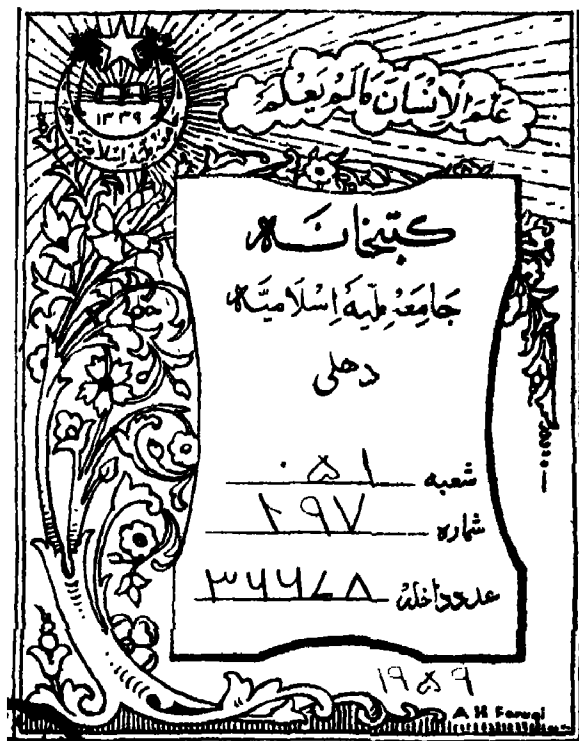 عَلَّمَ الْاِنْسَانَ مَا لَمْ يَعْلَمْ
۱۳۳۹
کتبخانہ
جَامِعَہ مِلّیَہ اِسْلَامیَّہ
دھلی
شعبہ ۰۵۱
شمارہ ۲۹۷
عدد داخلہ
۱۹۵۹
A H Faruqi